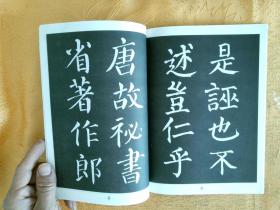 是誣也不
述豈仁乎
唐故祕書
省著作郎